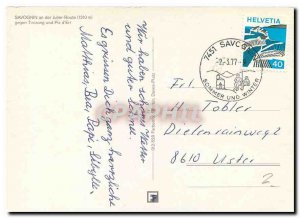 SAVOGNIN an der Julier-Route (1210 m)
gegen Tinizong und Piz d'Err
Wir haben schönes Wetter
und guter Schnee.
Es grüssen Dich ganz herzliche
Matthias, Bea, Papi, Sibylle
HELVETIA
40
7451 SAVOGNIN
-2.-3.77-
SOMMER UND WINTER
Frl.
H. Tobler
Dietenrainweg 2
8610 Uster
2